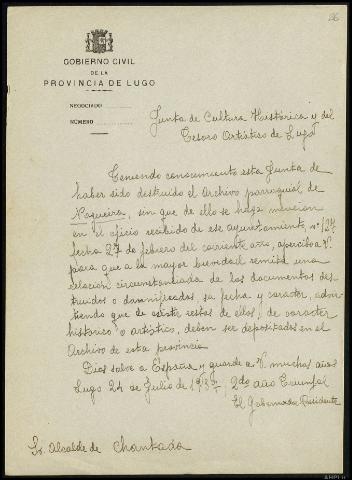 26
GOBIERNO CIVIL
DE LA
PROVINCIA DE LUGO
NEGOCIADO
NÚMERO
Junta de Cultura Histórica y del
Tesoro Artístico de Lugo
Teniendo conocimiento esta Junta de
haber sido destruido el Archivo parroquial de
Nogueira, sin que de ello se haga mencion
en el oficio recibido de ese ayuntamiento, nº 124
fecha 27 de febrero del corriente año, apercibo a V.
para que a la mayor brevedad remita una
relación circunstanciada de los documentos des-
truidos o damnificados, su fecha y caracter, advir-
tiendo que de existir restos de ellos, de caracter
histórico o artístico, deben ser depositados en el
Archivo de esta provincia
Dios salve a España y guarde a V. muchos años
Lugo 24 de Julio de 1937, 2do año Triunfal
El Gobernador Presidente
Sr. Alcalde de Chantada
AHPLu